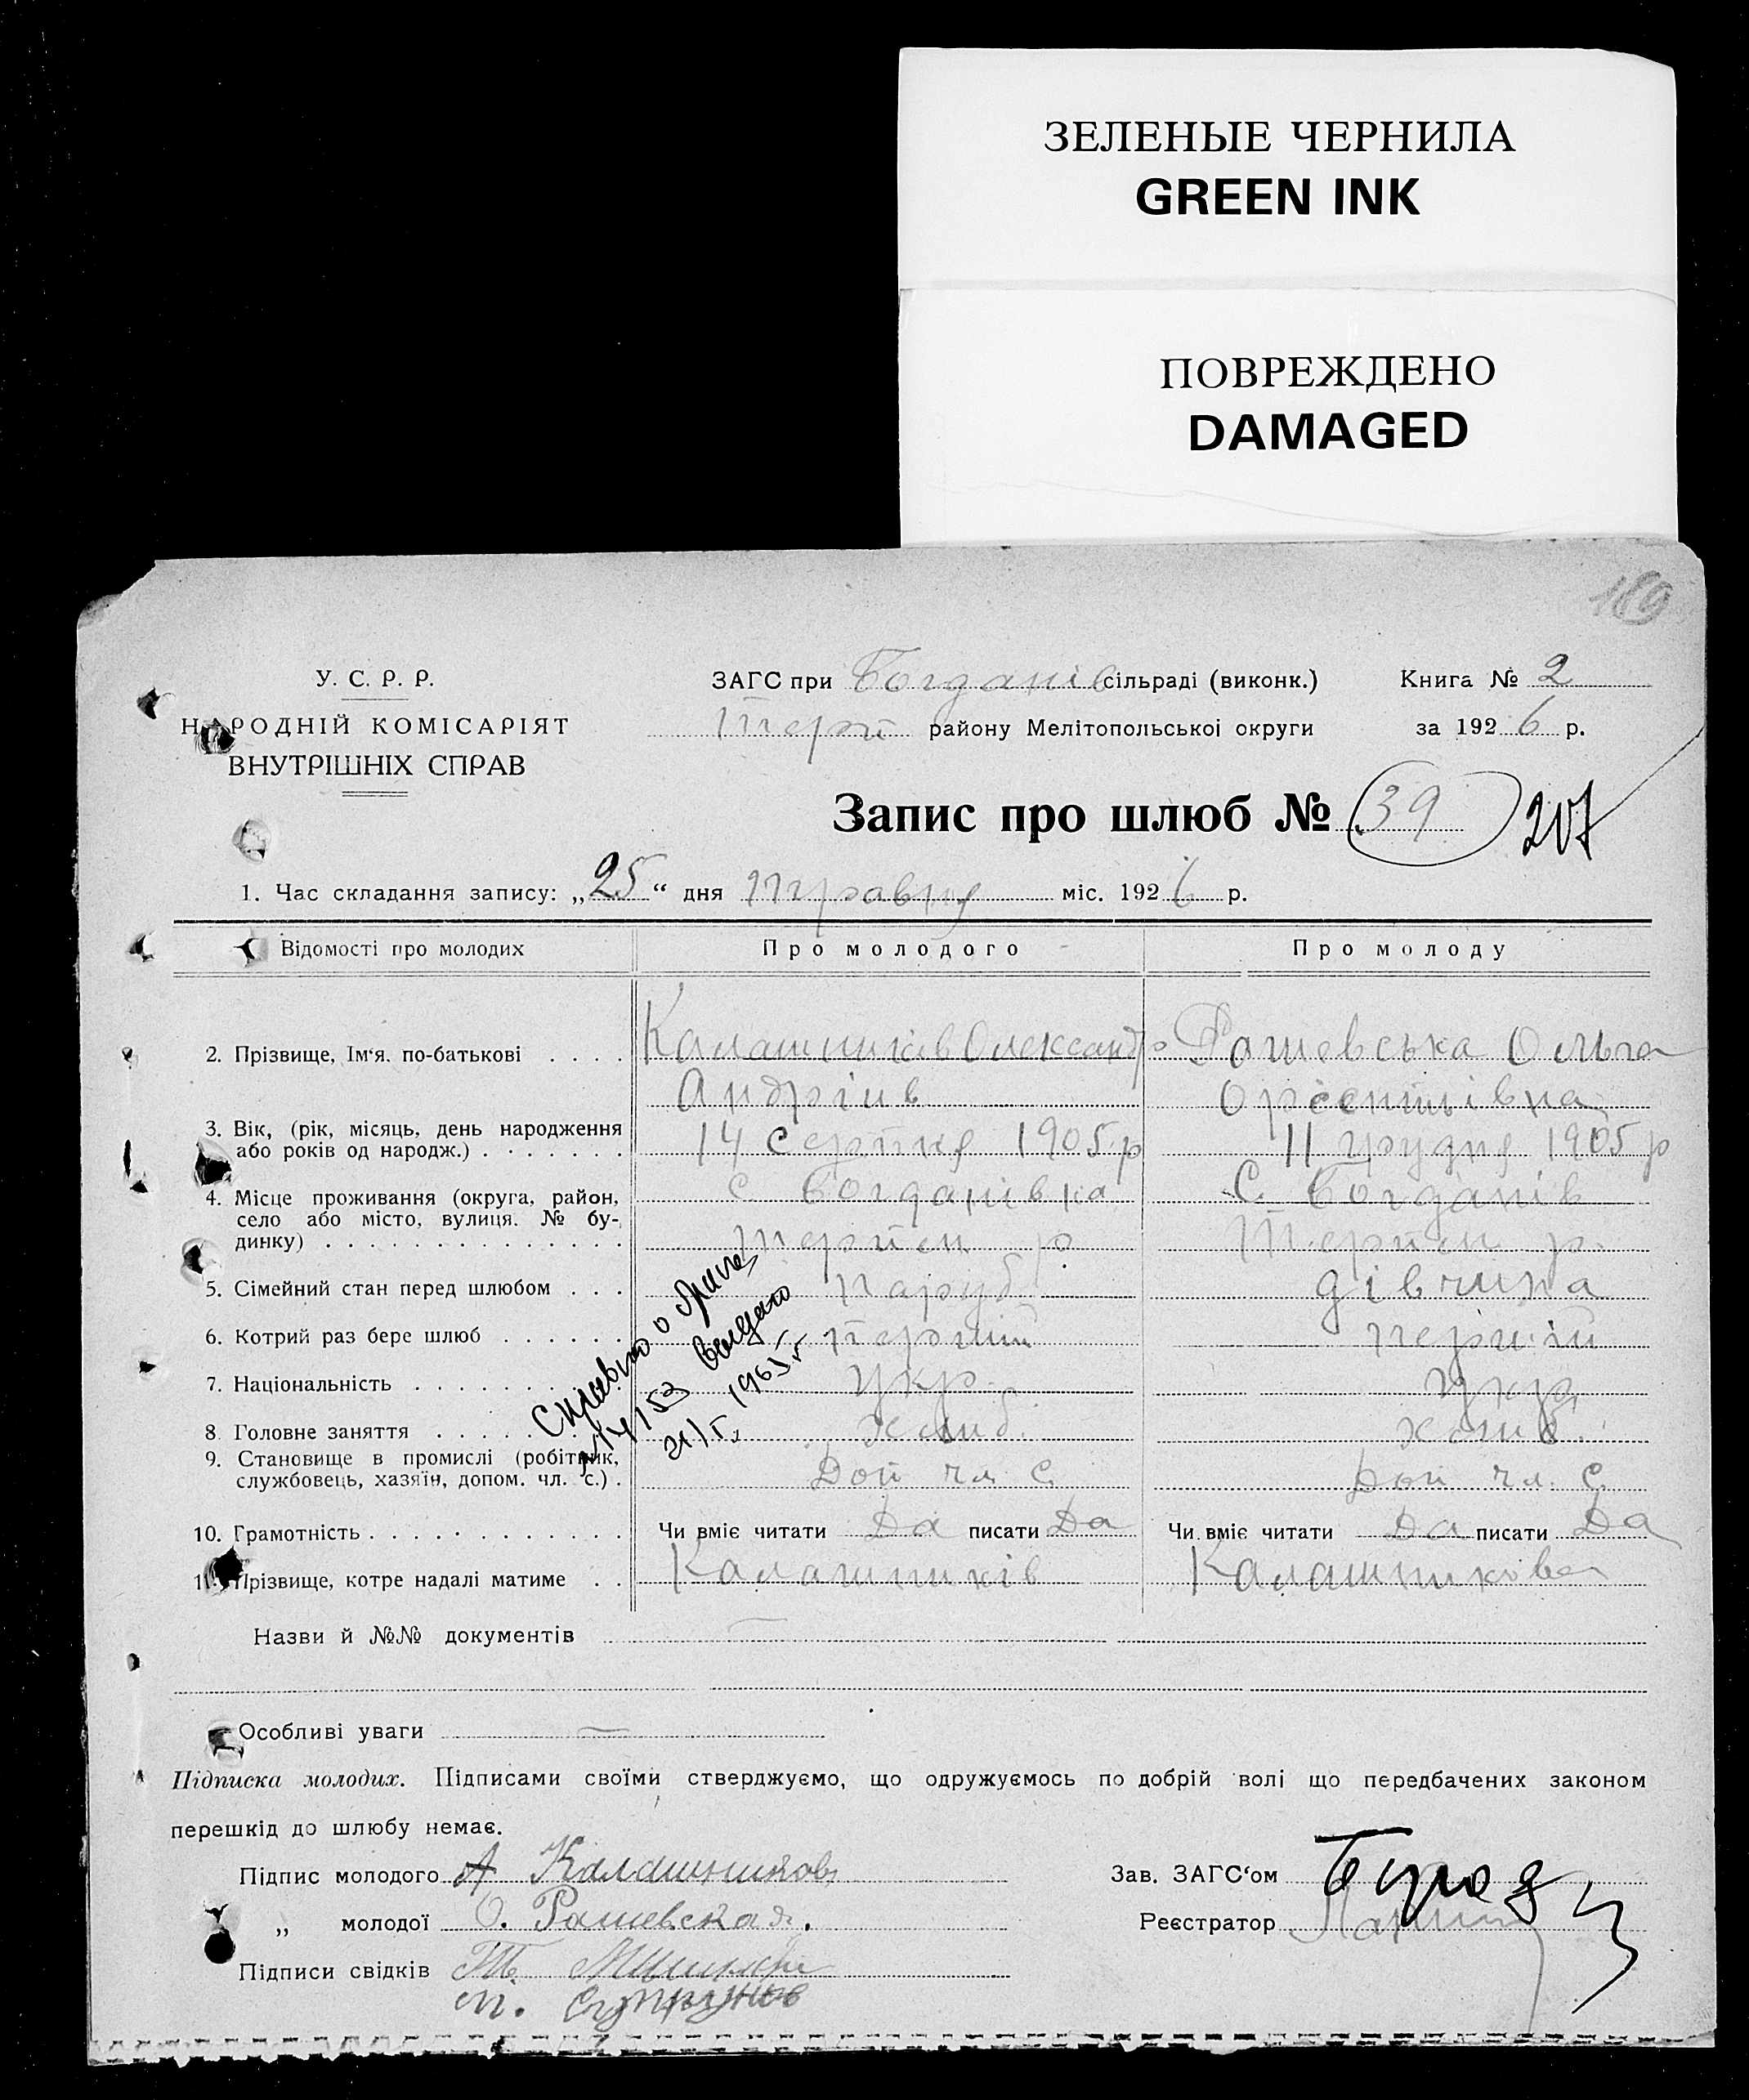 ЗЕЛЕНЫЕ ЧЕРНИЛА
GREEN INK
ПОВРЕЖДЕНО
DAMAGED
189
У. С. Р. Р.
НАРОДНІЙ КОМІСАРІЯТ
ВНУТРІШНІХ СПРАВ
ЗАГС при Богданів сільраді (виконк.)
Терп району Мелітопольської округи
Книга № 2
за 1926 р.
Запис про шлюб № 39 207
1. Час складання запису: „25“ дня травня міс. 1926 р.
Відомості про молодих Про молодого Про молоду
2. Прізвище, Ім‘я, по-батькові . . . . Калашніков Олександр Рашевська Ольга
Андріїв
3. Вік, (рік, місяць, день народження або років од народж.) . . . . . . . 14 серпня 1905 р 11 грудня 1905 р
4. Місце проживання (округа, район, село або місто, вулиця. № будинку) . . . . . . . . . . . . . . с Богданівка С. Богданів
Терпен р. Терпен р.
5. Сімейний стан перед шлюбом . . . паруб. дівчина
6. Котрий раз бере шлюб . . . . . . перший перший
7. Національність . . . . . . . . . . укр. укр.
8. Головне заняття . . . . . . . хліб. хліб.
9. Становище в промислі (робітник, службовець, хазяїн, допом. чл. с.) . Доп чл. С. Доп чл. С.
10. Грамотність . . . . . . . . . . . . Чи вміє читати Да писати Да Чи вміє читати Да писати Да
11. Прізвище, котре надалі матиме . . Калашників Калашникова
Справка о браке
153 выдано
21/I 1963 г.
Назви й №№ документів —
Особливі уваги —
Підписка молодих. Підписами своїми стверджуємо, що одружуємось по добрій волі що передбачених законом
перешкід до шлюбу немає.
Підпис молодого А Калашников
„ молодої О. Рашевская.
Підписи свідків Т.
т. Супрунов
Зав. ЗАГС‘ом
Реєстратор